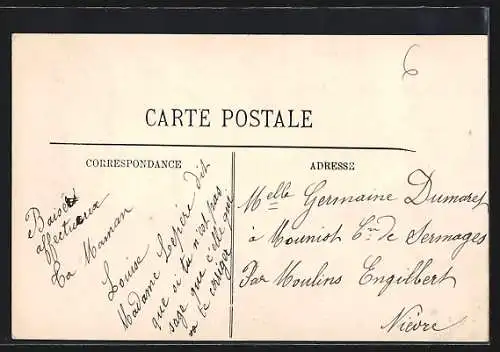 6
CARTE POSTALE
CORRESPONDANCE
ADRESSE
Baisés
affectueux
ta Maman
Louise
Madame Lepère dit
que si tu n'est pas
sage que c'elle qui
va te corriger
Melle Germaine Dumarest
à Mouniot Cne de Sermages
Par Moulins Engilbert
Nièvre